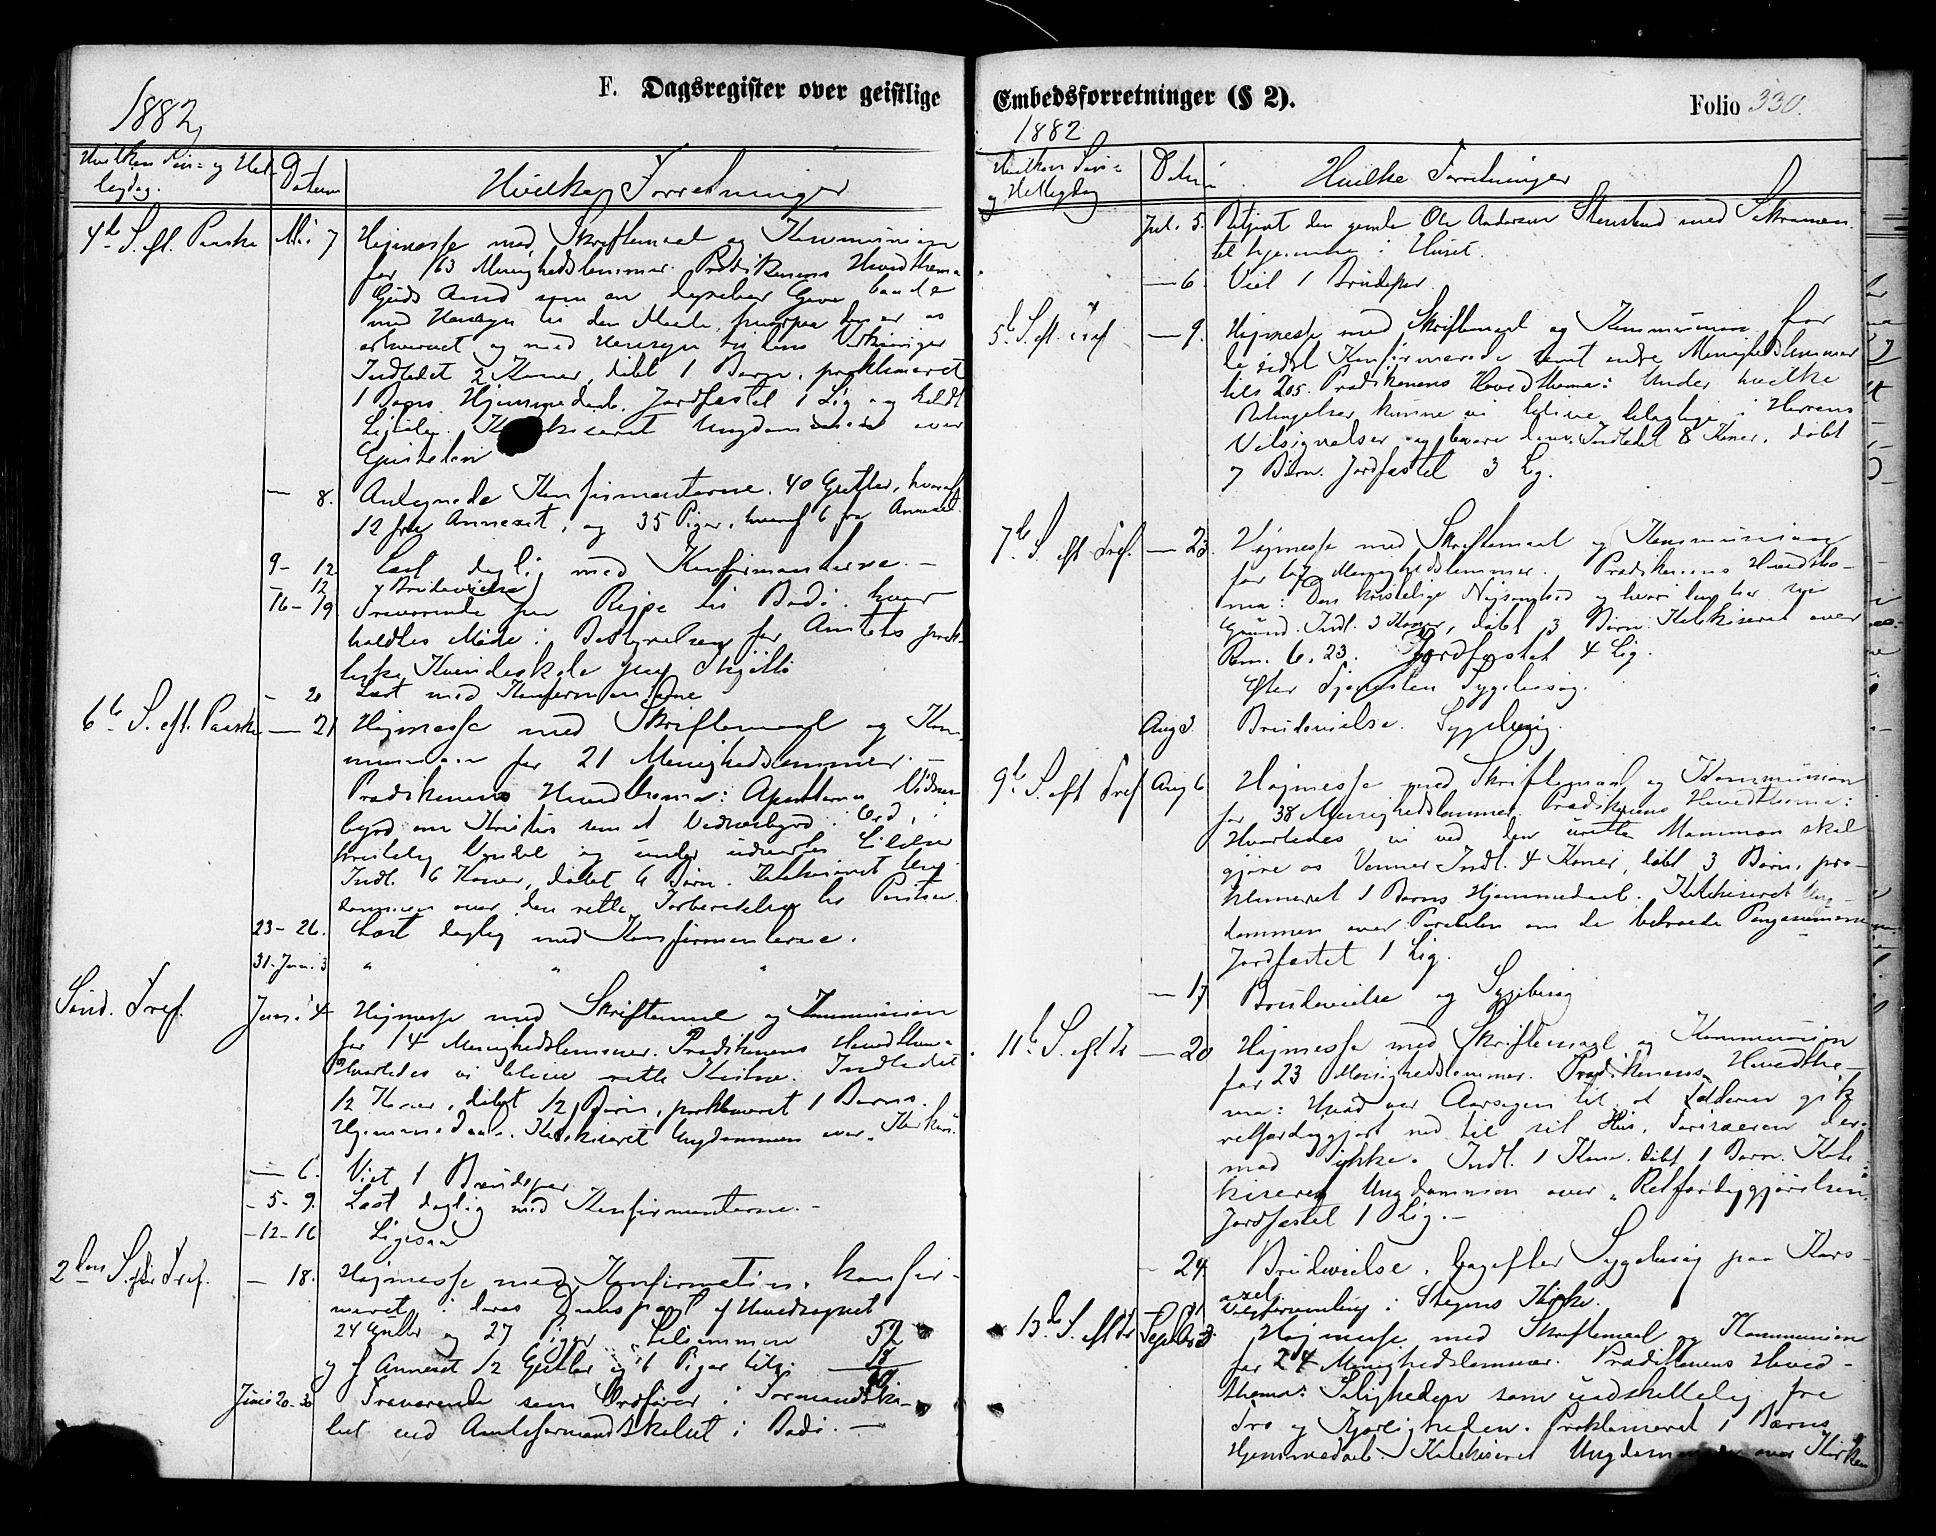 F. Dagsregister over geistlige
1882
Hvilken Søn- og Hel-
ligdag.
Datum
Hvilke Forretninger
4de S. eft. Paaske Mai 7 Højmesse med Skriftemaal og Kommunion
for 163 Menighedslemmer. Prædikenens Hovedthema
Guds Aand som en Gave baade
med Hensyn til den Maade, hvorpaa den er os
erhvervet og med Hensyn til dens Virkninger
Indledet 2 Koner, døbt 1 Barn, proklameret
1 Barns Hjemmedaab. Jordfæstet 1 Lig og holdt
Ligtale. Ungdommen over
Epistelen
— 8. Antegnede Konfirmanterne. 40 Gutter, hvoraf
12 fra Annexet, og 35 Piger, hvoraf 6 fra Annexet
9 - 12 Læst daglig med Konfirmanterne. —
12 Brudevielse
16 - 19 Fraværende paa Rejse til Bodø, hvor
holdtes Møde i Bestyrelsen for Amtets prak-
tiske Kvindeskole paa
- 20 Læst med Konfirmanterne
6te S. eft. Paaske — 21 Højmesse med Skriftemaal og Kom-
munion for 21 Menighedslemmer. —
Prædikenens Hovedthema: Apostlernes Vidnes-
byrd om Kristus som et Vidnesbyrd i Ord, i
kristelig Vandel og under Lidelser
Indl. 6 Koner, døbt 6 Børn. Katekiseret Ung-
dommen over den rette Forberedelse til Pintsen.
23 - 26. Læst daglig med Konfirmanterne.
31 - Juni 3 " " "
Sønd. Tref. Juni 4 Højmesse med Skriftemaal og Kommunion
for 14 Menighedslemmer. Prædikenens Hovedthema
Hvorledes vi blive rette Kristne. Indledet
12 Koner, døbt 12 Børn, proklameret 1 Barns
Hjemmedaab. Katekiseret Ungdommen over
— 6. Viet 1 Brudepar
- 5 - 9. Læst daglig med Konfirmanterne. -
- 12 - 16 Ligesaa
2den S. efter Tref. — 18. Højmesse med Konfirmation. Konfir-
meret i deres Daabspagt af Hovedsognet
24 Gutter og 27 Piger, tilsammen 52
og f Annexet 12 Gutter og 6 Piger tils. 18
Juni 20-30 Fraværende som Ordfører i Formandska-
bet ved Amtsformandskabet i Bodø. —

Embedsforretninger (§ 2).
Folio 330.
1882
Hvilken Søn-
og Helligdag
Datum
Hvilke Forretninger
Jul. 5. Betjent den gamle Ole Andersen med Sakramen-
tet hjemme i Huset.
— 6 Viet 1 Brudepar.
5te S. eft. Tref — 9. Højmesse med Skriftemaal og Kommunion for
de sidst Konfirmerede samt andre Menighedslemmer
tils 205. Prædikenens Hovedthema: Under hvilke
Betingelser kunne vi blive delagtige i Herrens
Velsignelser og bevare dem. Indledet 8 Koner, døbt
7 Børn. Jordfæstet 3 Lig.
7de S. eft Tref. — 23. Højmesse med Skriftemaal og Kommunion
for Menighedslemmer. Prædikenens Hovedthe-
ma: Den kristelige Nøjsomhed og hvori den har sin
Grund. Indl. 3 Koner, døbt 3 Børn. Katekiseret over
Rom. 6, 23. Jordfæstet 4 Lig.
Efter Tjenesten Sygebesøg.
Aug 3 Brudevielse. Sygebesøg.
9de S. eft Tref Aug 6 Højmesse med Skriftemaal og Kommunion
for 38 Menighedslemmer. Prædikenens Hovedthema:
Hvorledes vi ved den urette Mammon skal
gjøre os Venner. Indl. 4 Koner, døbt 3 Børn, pro-
klameret 1 Barns Hjemmedaab. Katekiseret Ung-
dommen over Parabelen om de betroede Pengesummer
Jordfæstet 1 Lig.
— 17 Brudevielse og Sygebesøg
11te S. eft Tr — 20 Højmesse med Skriftemaal og Kommunion
for 23 Menighedslemmer. Prædikenens Hovedthe-
ma: Hvad var Aarsagen til, at Tolderen gik
retfærdiggjort ned til sit Hus, Farisæeren der-
mod ikke. Indl. 1 Kone, døbt 1 Barn. Kate-
kiseret Ungdommen over "Retfærdiggjørelsen"
Jordfæstet 1 Lig. —
— 24 Brudevielse, bagefter Sygebesøg paa Kors-
i Stegens Kirke.
13de S. eft Tr Septbr 3 Højmesse med Skriftemaal og Kommunion
for 24 Menighedslemmer. Prædikenens Hoved-
thema: Saligheden som uadskillelig fra
Tro og Kjærligheden. Proklameret 1 Barns
Hjemmedaab. Katekiseret Ungdommen over Kirken